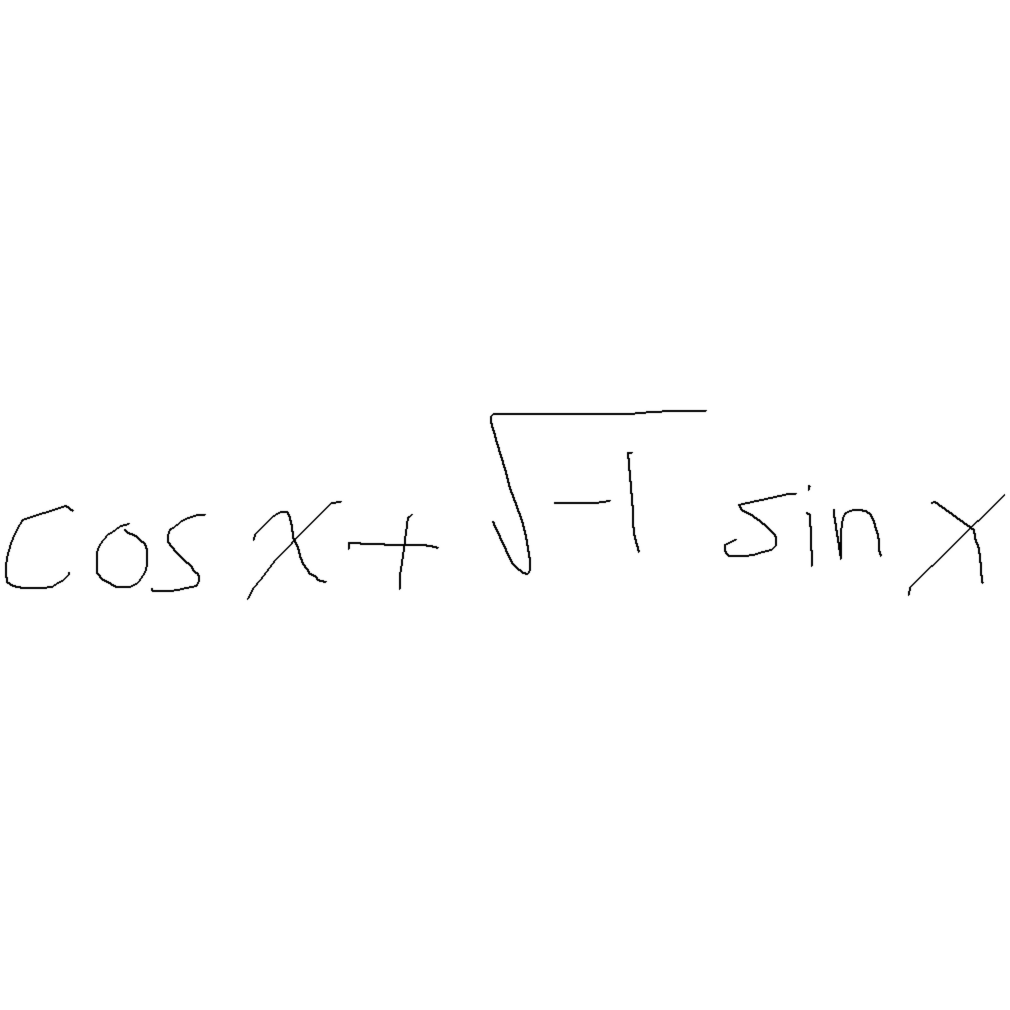 cos x + √-1 sin x